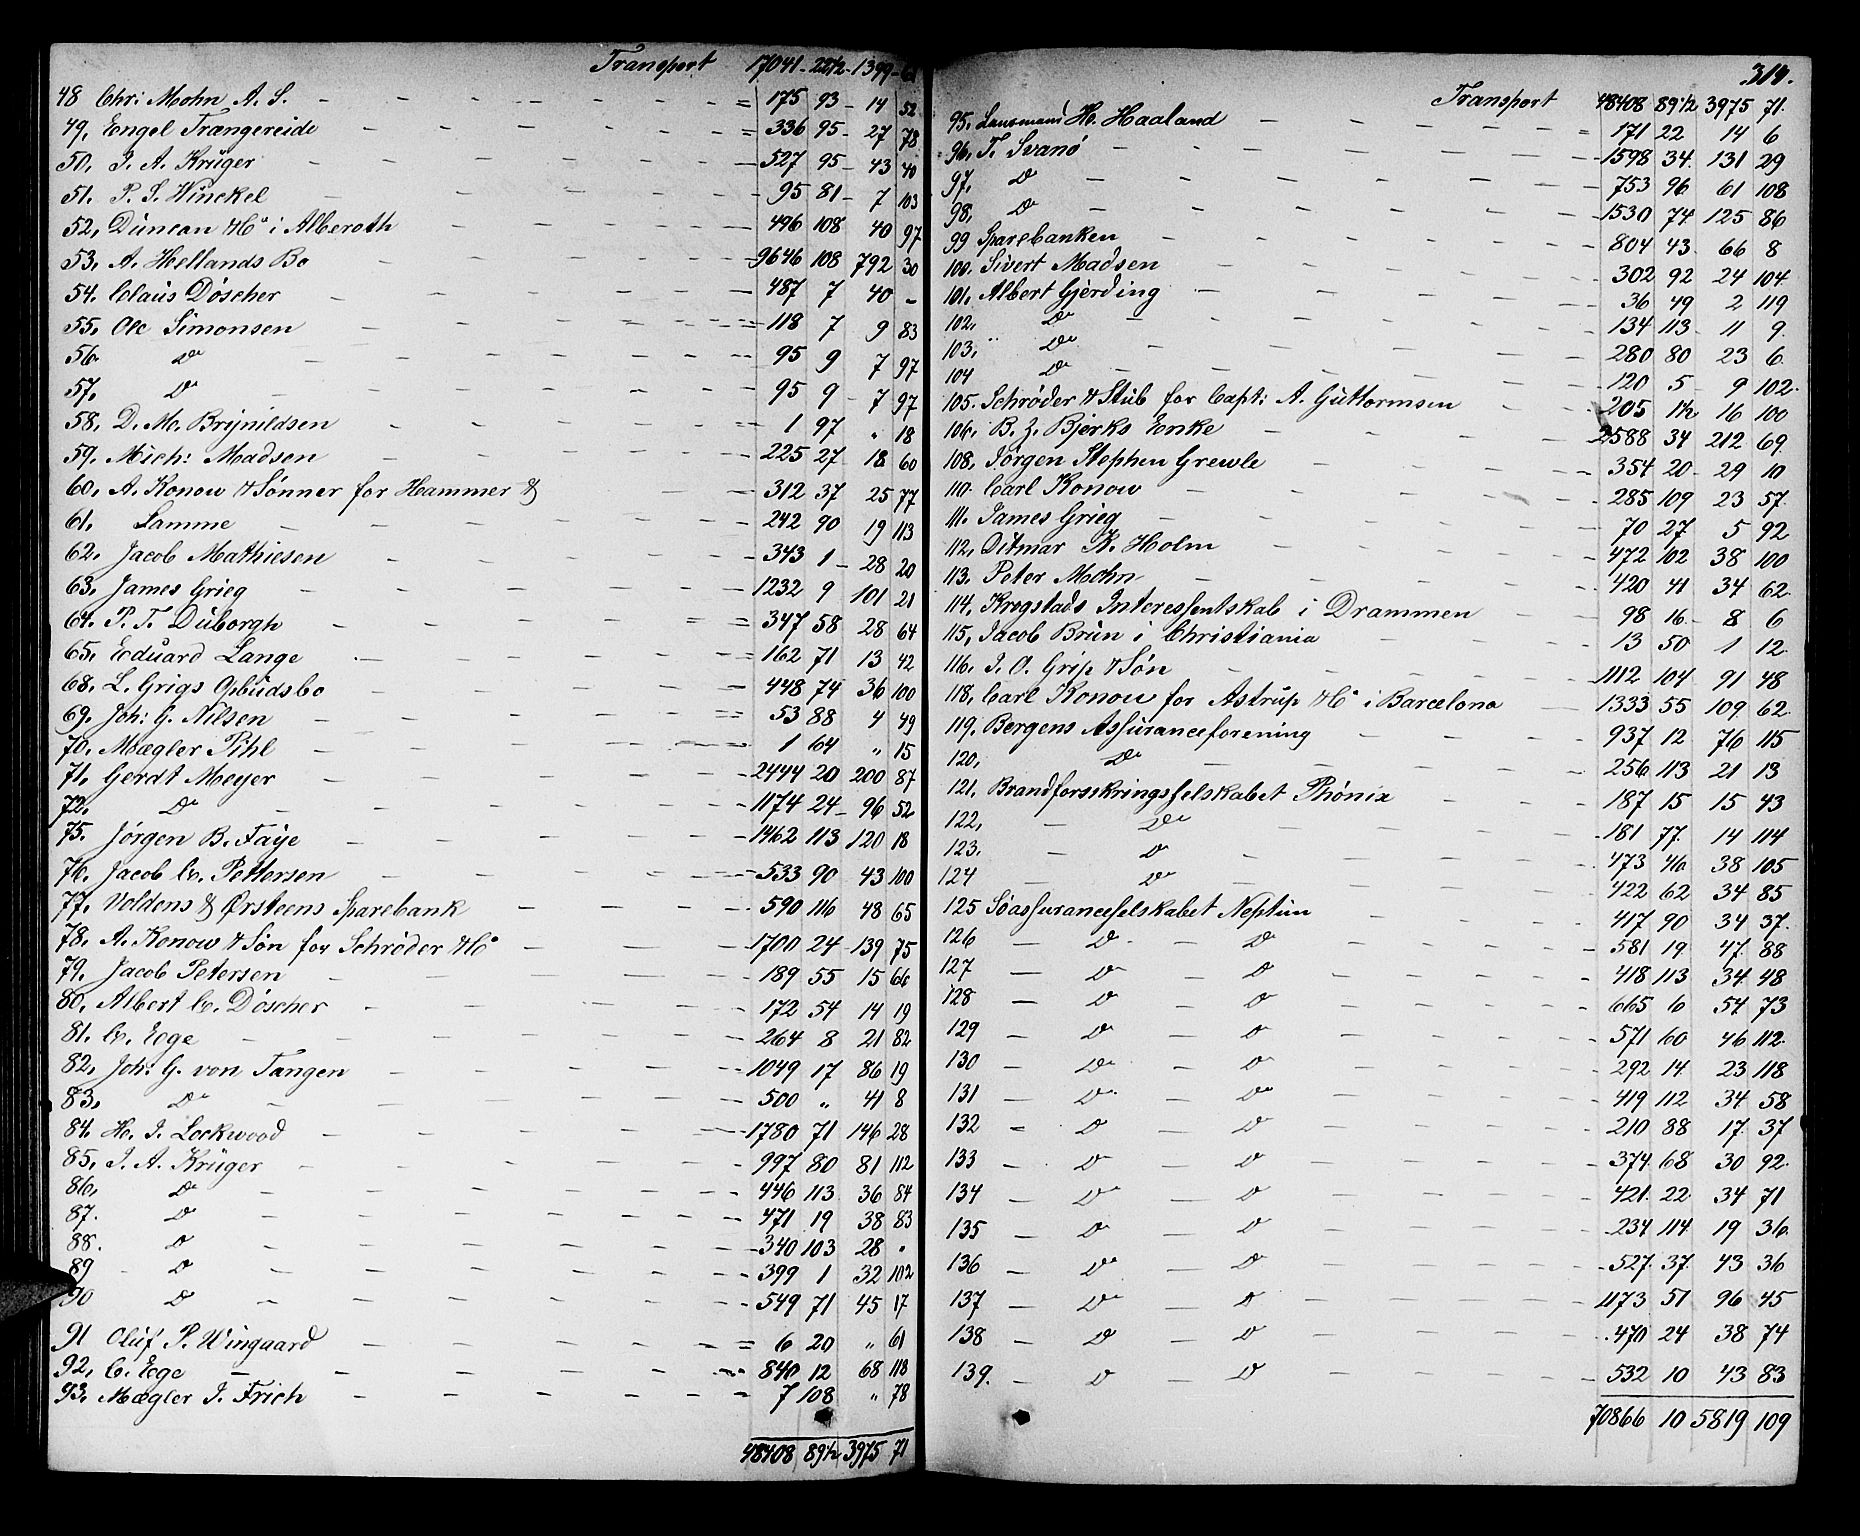 Transport 17041 - 22 1/2 - 1399 - 61
48 Chr: Mohn A. S. 175 93 - 14 52
49, Engel Trangereide 336 95 - 27 78
50, J. A. Krüger 527 95 - 43 40
51. P. S. Winckel 95 81 - 7 103
52, Duncan & Co i Alberoth 496 108 40 97
53. A. Hellands Bo 9646 108 792 30
54. Claus Döscher 487 7 40 -
55. Ole Simonsen 118 7 9 83
56. Do 95 9 7 97
57, Do 95 9 - 7 97
58, D. M. Brynildsen 1 97 " 18
59. Mich: Madsen 225 27 - 18 60
60, A. Konow & Sønner for Hammer & 312 37 25 77
61. Lamme 242 90 19 113
62. Jacob Mathiesen 343 1 - 28 20
63. James Grieg 1232 9 101 21
64. P. T. Düborgh 347 58 28 64
65. Eduard Lange 162 71 13 42
68, L. Grigs Opbudsbo 448 74 36 100
69. Joh: G. Nilsen 53 88 4 49
70. Mægler Pihl 1 64 " 15
71. Gerdt Meyer 2444 20 200 87
72. Do 1174 24 - 96 52
75. Jørgen B. Faye 1462 113 120 18
76. Jacob C. Pettersen 533 90 43 100
77. Voldens & Ørsteens Sparebank 590 116 48 65
78. A. Konow & Søn for Schrøder & Co 1700 24 - 139 75
79. Jacob Petersen 189 55 15 66
80, Albert C. Döscher 172 54 14 19
81. C. Ege 264 8 21 82
82, Joh: G. von Tangen 1049 17 86 19
83, Do 500 " 41 8
84. H. J. Lockwood 1780 71 146 28
85, J. A. Krüger 997 80 81 112
86, Do 446 113 36 84
87. Do 471 19 38 83
88. Do 340 103 28 "
89 Do 399 1 32 102
90 Do 549 71 45 17
91 Oluf P. Wingaard 6 20 " 61
92, C. Ege 840 12 68 118
93. Mægler J. Frich 7 108 " 78
48408 89 1/2 3975 71
314.
Transport 48408 89 1/2 3975 71.
95. Lensmand H. Haaland 171 22 14 6
96, T. Svanö 1598 34. 131 29
97, Do 753 96 61 108
98, Do 1530 74 125 86
99 Sparebanken 804 43. 66 8
100. Sivert Madsen 302 92 24 104
101, Albert Gjerding 36 49 2 119
102, Do 134 113 11 9.
103, " Do 280 80 23 6.
104 Do 120 5 9 102.
105. Schrøder & Stub for Capt: A. Guttormsen 205 1 1/2 16 100
106, B. Z. Bjerks Enke 2588 34 212 69.
108, Jørgen Stephen Grewle 354 20 - 29 10
110. Carl Konow 285 109 23 57.
111. James Grieg 70 27 5 92
112, Ditmar K. Holm 472 102 38 100
113. Peter Mohn 420 41 34 62.
114, Krogstads Interessentskab i Drammen 98 16 - 8 6
115, Jacob Brun i Christiania 13 50 1 12.
116. J. O. Grip & Søn 1112 104 91 48
118, Carl Konow for Astrup & Co i Barcelona 1333 55 109 62.
119. Bergens Assuranceforening 937 12 76 115
120, Do 256 113 21 13
121. Brandforsikringsselskabet Phönix 187 15 15 43
122, Do 181 77. 14 114
123. Do 473 46 38 105
124 Do 422 62 34 85
125 Søassuranceselskabet Neptun 417 90 34 37.
126 Do Do 581 19. 47. 88
127 Do Do 418 113 34. 48
128 Do Do 665 6 54 73
129 Do Do 571 60 46 112.
130 Do Do 292 14. 23 118
131 Do Do 419 112 34 58
132 Do Do 210 88 17. 37
133 Do Do 374. 68 30 92.
134 Do Do 421. 22. 34 71
135 Do Do 234 114 19 36.
136 Do Do 527. 37. 43 36
137 Do Do 1173 51 96 45
138 Do Do 470 24 38 74
139. Do Do 532 10 43 83
70866 10 5819 109